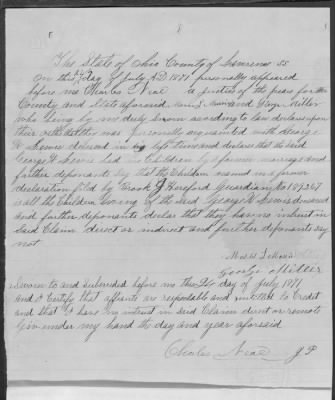 The State of Ohio County of Lawrence SS
On this day of July AD 1891 personally appeared
before me Charles Neal a justice of the peace for the
County and State aforesaid and George Miller
who being by me duly sworn according to law declares upon
their oath that was personally acquainted with George
W Lewis deceased in his life time and declares that the said
George W Lewis had no Children by a former marriage and
further deponants say that the Children named in a former
declaration filed by Brook J Hereford Guardian No
is all the Children living of the said George W Lewis deceased
and further deponants declar that they have no interest in
said Claim direct or indirect and further deponants say
not
George Miller
Sworn to and subscribed before me this day of July 1891
and I Certify that affiants are respectable and intitled to Credit
and that I have no interest in said Claim direct or remote
Given under my hand the day and year aforesaid
Charles Neal J P